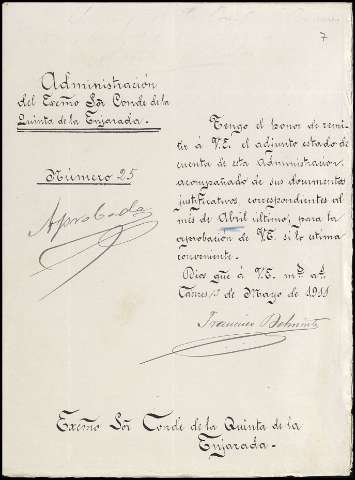 7
Administración
del Excmo Sor Conde de la
Quinta de la Enjarada.
Número 25
Aprobada
Tengo el honor de remi-
tir á V.E. el adjunto estado de
cuenta de esta Administracion,
acompañado de sus documentos
justificativos correspondientes al
mes de Abril último; para la
aprobacion de V.E. si lo estima
conveniente.
Dios gue á V.E. ms. as.
Cáceres de Mayo de 1911
Francisco
Excmo Sor Conde de la Quinta de la
Enjarada.